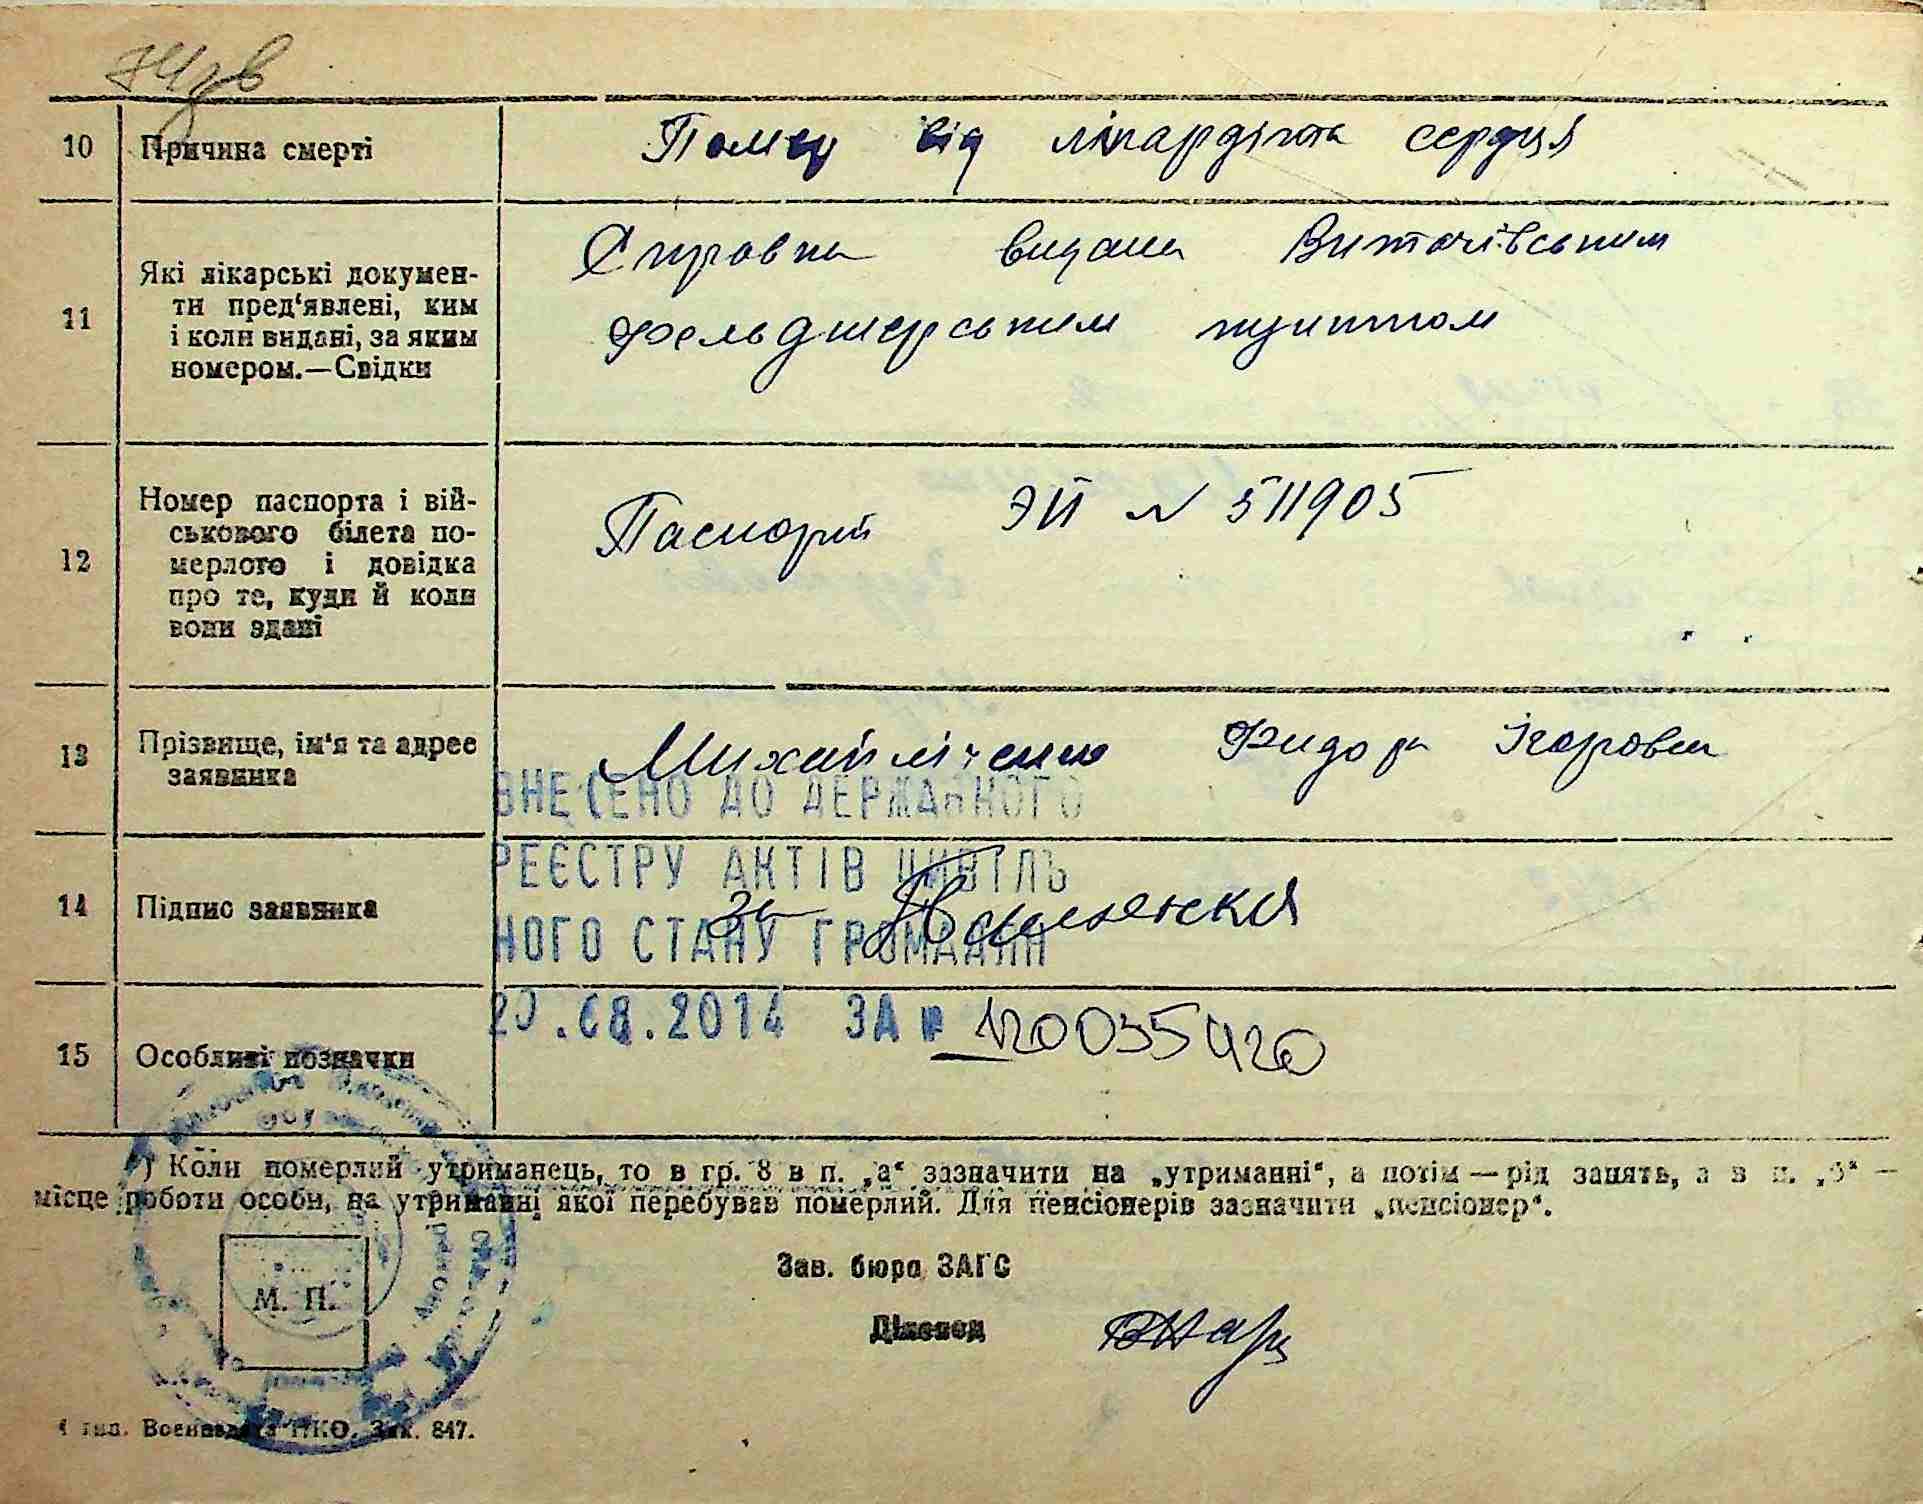 10 Причина смерті
Помер від мікардіта серця
11 Які лікарські докумен-
ти пред‘явлені, ким
і коли видані, за яким
номером.—Свідки
Справка видана Витачівським
фельдшерським пунктом
12 Номер паспорта і вій-
ськового білета по-
мерлого і довідка
про те, куди й коли
вони здані
Паспорт ЭЙ № 511905
13 Прізвище, ім‘я та адрес
заявника
Михайліченко Фидора Ігоровна
ВНЕСЕНО ДО ДЕРЖАВНОГО
РЕЄСТРУ АКТІВ ЦИВІЛЬ
14 Підпис заявника
за
НОГО СТАНУ ГРОМАДЯН
15 Особливі позначки
.08.2014 ЗА № 120035420
*) Коли померлий утриманець, то в гр. 8 в п. „а“ зазначити на „утриманні“, а потім — рід занять, а в п. „б“ —
місце роботи особи, на утриманні якої перебував померлий. Для пенсіонерів зазначити „пенсіонер“.
Зав. бюро ЗАГС
М. П.
Діловод
тип. Воениздата НКО. Зак. 847.